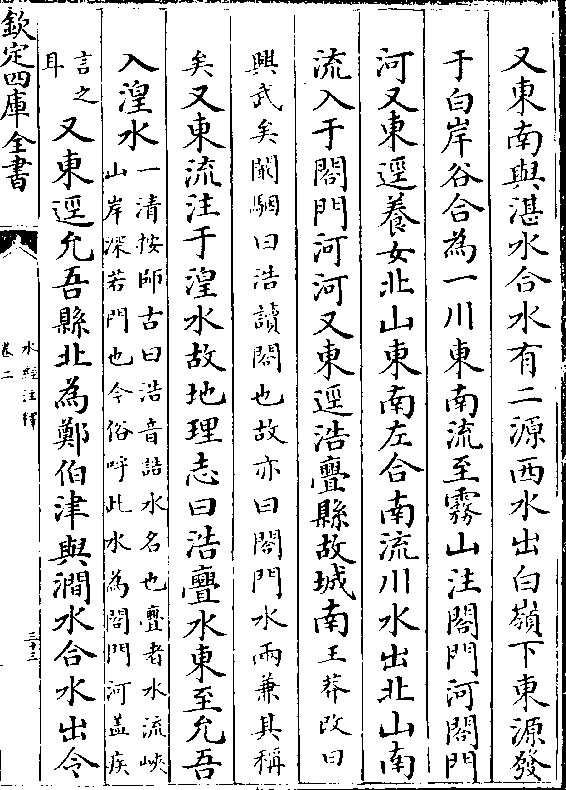 又東南與湛水合水有二源西水出白嶺下東源發
于白岸谷合為一川東南流至霧山注閤門河閤門
河又東逕養女北山東南左合南流川水出北山南
流入于閤門河河又東逕浩亹縣故城南王莽改曰
興武矣闞駰曰浩讀閤也故亦曰閤門水兩兼其稱
矣又東流注于湟水故地理志曰浩亹水東至允吾
入湟水一清按師古曰浩音誥水名也亹者水流峽
山岸深若門也今俗呼此水為閤門河盖疾
言之
耳又東逕允吾縣北為鄭伯津與澗水合水出令
欽定四庫全書
水經注釋
卷二
三十三